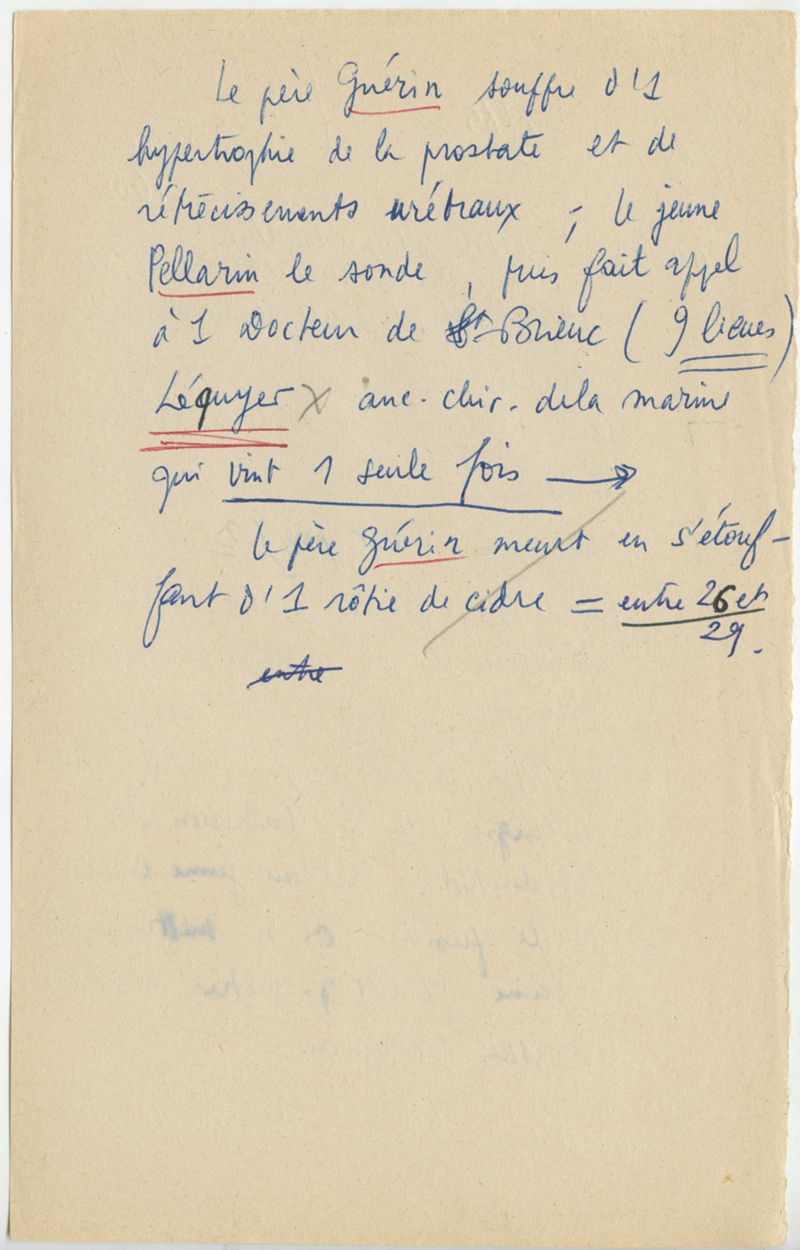 Le père Guérin souffre d'1
hypertrophie de la prostate et de
rétrécissements urétraux ; le jeune
Pellarin le sonde, puis fait appel
à 1 Docteur de St Brieuc (9 lieues)
Léquyer x anc. chir. de la marine
qui vint 1 seule fois →
le père Guérin meurt en s'étouf-
fant d'1 rôtie de cidre = entre 26 et
29.
entre